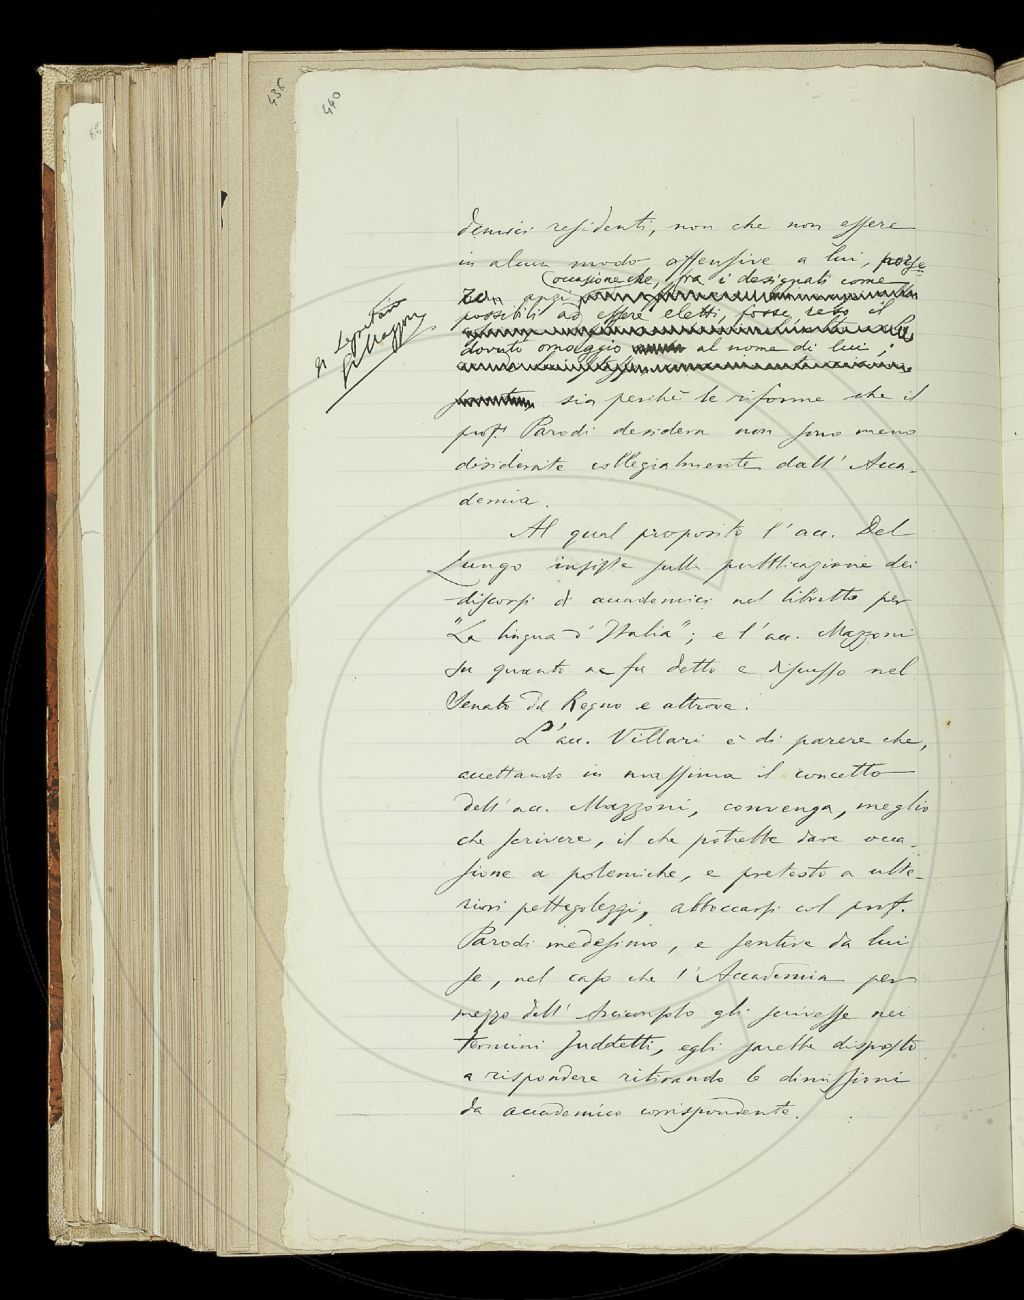 438
440
demici residenti, non che non essere
in alcun modo offensive a lui, porge-
(occasione che, fra i designati come
van anzi
possibili ad essere eletti, fosse reso il
dovuto omaggio al nome di lui;
Il Segretario
G. Mazzoni
sia perchè le riforme che il
prof. Parodi desidera non sono meno
desiderate collegialmente dall' Acca-
demia.
Al qual proposito l' acc. Del
Lungo insiste sulla pubblicazione dei
discorsi di accademici nel libretto per
"La lingua d' Italia"; e l' acc. Mazzoni
su quanto ne fu detto e discusso nel
Senato del Regno e altrove.
L' acc. Villari è di parere che,
accettando in massima il concetto
dell' acc. Mazzoni, convenga, meglio
che scrivere, il che potrebbe dare occa-
sione a polemiche, e pretesto a ulte-
riori pettegoleggi, abboccarsi col prof.
Parodi medesimo, e sentire da lui
se, nel caso che l' Accademia per
mezzo dell' Arciconsolo gli scrivesse nei
termini suddetti, egli sarebbe disposto
a rispondere ritirando le dimissioni
da accademico corrispondente.